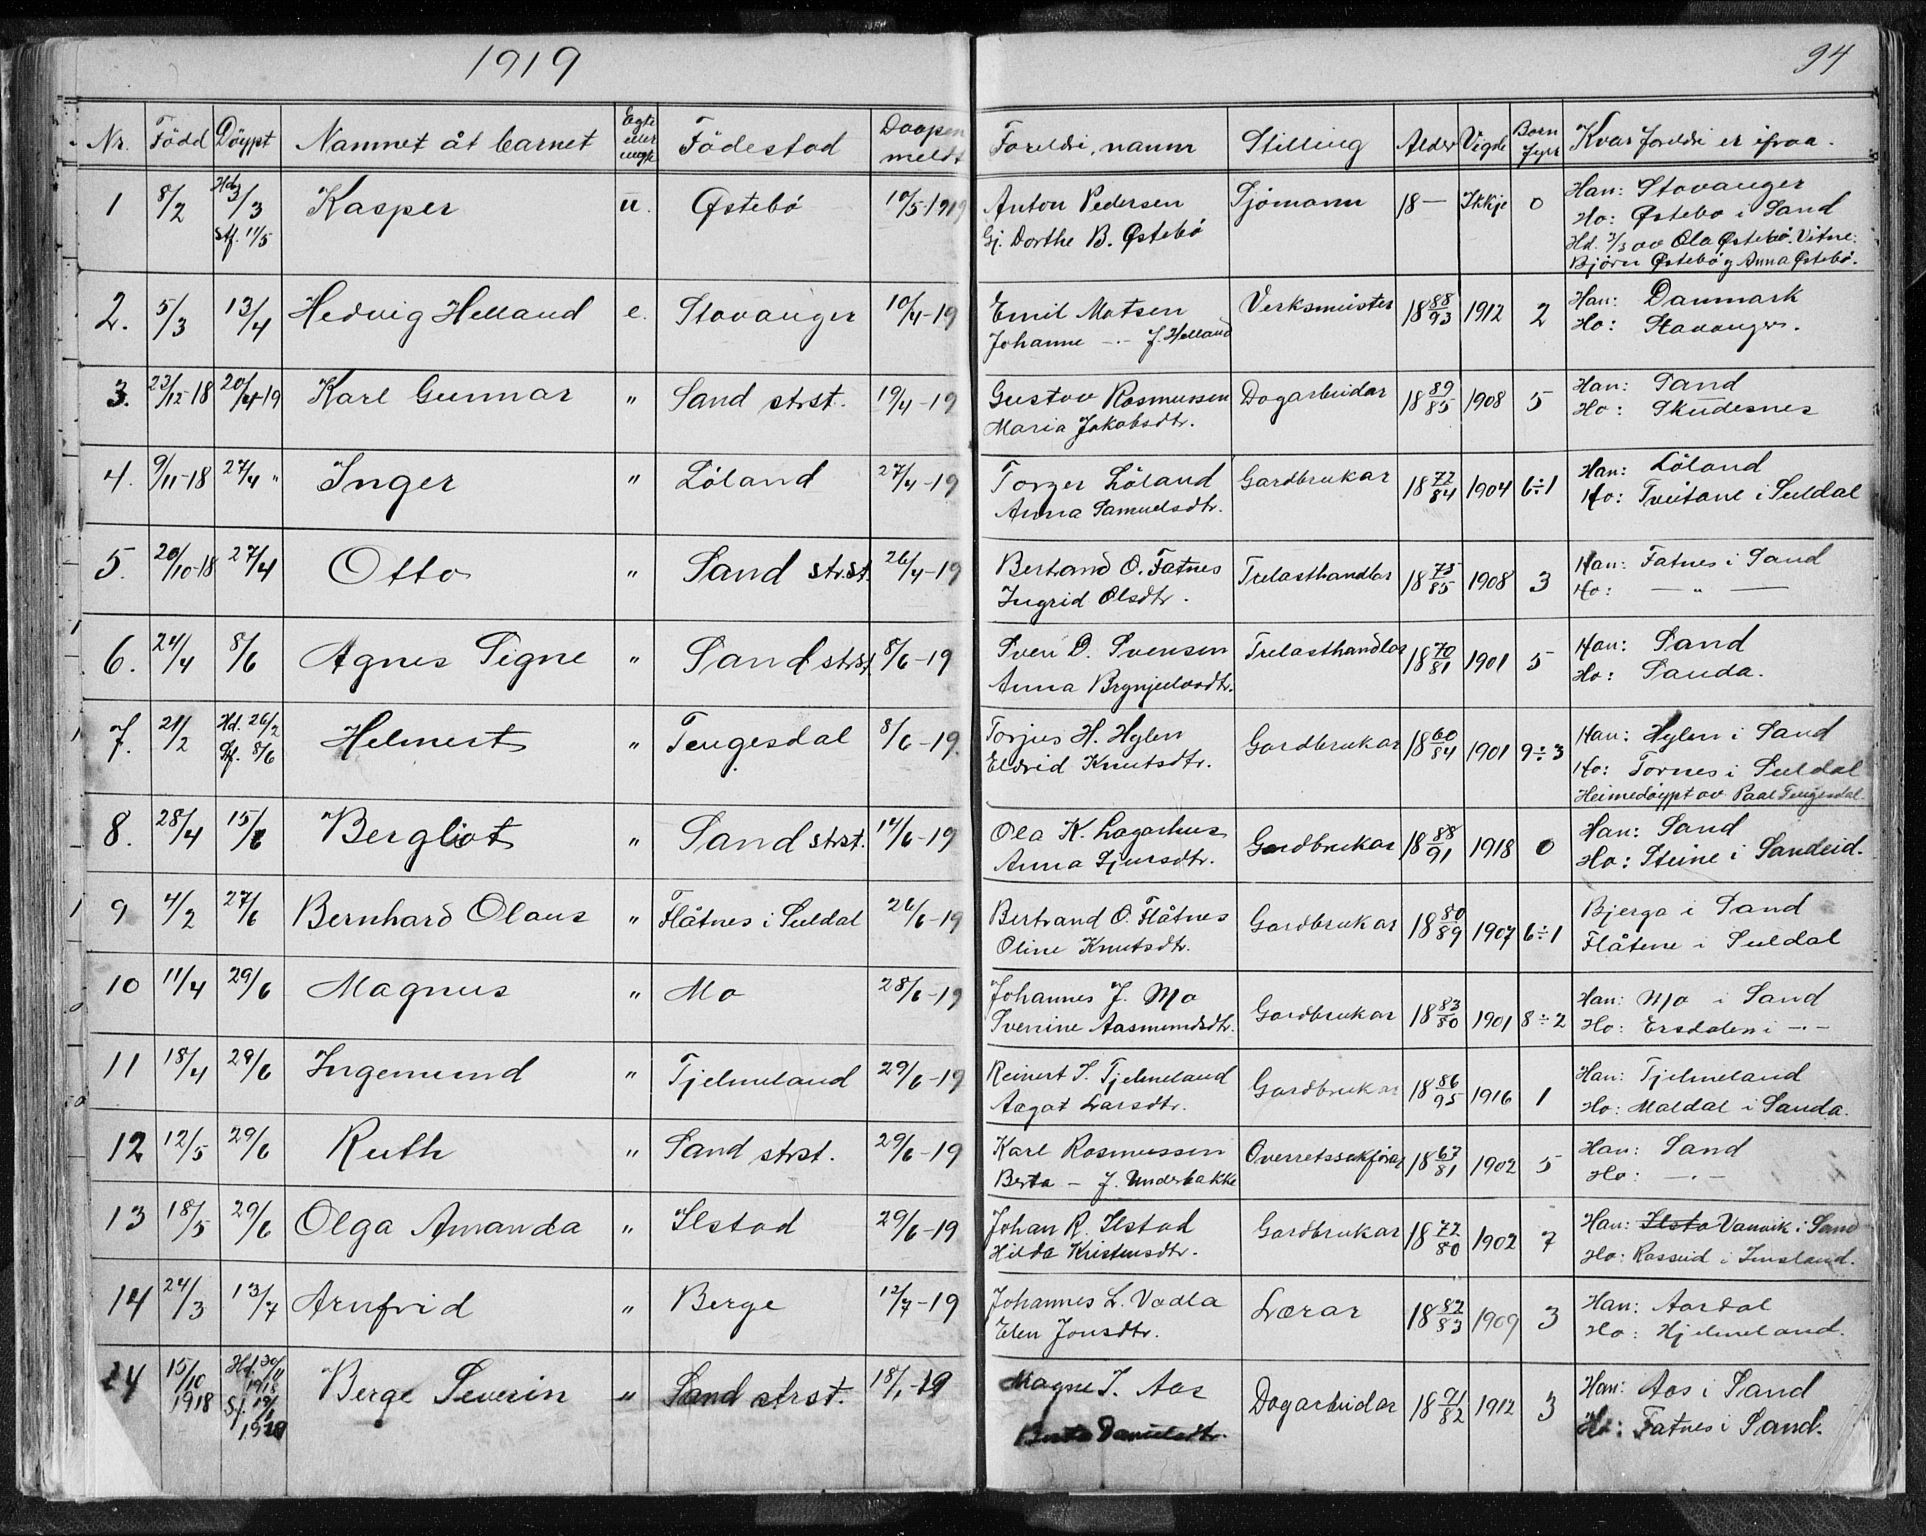 1919
94
Nr. Född Döypt Namnet åt barnet Egte eller uegte Födestad Daapen meldt Foreldri, namn Stilling Alder Vigde Born fyrr Kvar foreldri er ifraa.
1 8/2 Hd. 3/3 Stf. 11/5 Kasper u. Østebö 10/5-1919 Anton Pedersen Sjömann 18— Ikkje 0 Han: Stavanger
Gj. Dorthe B. Østebö Ho: Østebö i Sand
Hd. 3/3 av Ola Østebö. Vitne:
Björn Østebö og Anna Østebö.
2. 5/3 13/4 Hedvig Helland e. Stavanger 10/4-19 Emil Matsen Verksmeister 18 88/93 1912 2 Han: Danmark
Johanne -"- J. Helland Ho: Stavanger.
3. 23/12-18 20/4-19 Karl Gunnar " Sand strst. 19/4-19 Gustav Rasmussen Dagarbeidar 18 89/85 1908 5 Han: Sand
Maria Jakobsdtr. Ho: Skudesnes
4. 9/11-18 27/4 " Inger " Löland 27/4-19 Torger Löland Gardbrukar 18 72/84 1904 6÷1 Han: Löland
Anna Samuelsdtr. Ho: Tveitane i Suldal
5. 20/10-18 27/4 Otto " Sand strst. 26/4-19 Bertand O. Fatnes Trelasthandlar 18 75/85 1908 3 Han: Fatnes i Sand
Ingrid Olsdtr. Ho: — " —
6. 24/4 8/6 Agnes Signe " Sand strst. 8/6-19 Sven D. Svensen Trelasthandlar 18 70/81 1901 5 Han: Sand
Anna Brynjulvsdtr. Ho: Sauda.
7. 21/2 Hd. 26/2 Stf. 8/6 Helmert " Tengesdal 8/6-19. Torjus H. Hylen Gardbrukar 18 60/84 1901 9÷3 Han: Hylen i Sand
Eldrid Knutsdtr. Ho: Tornes i Suldal
Heimedöypt av Paal Tengesdal.
8. 28/4 15/6 Bergliot " Sand strst. 14/6-19 Ola K. Lagarhus Gardbrukar 18 88/91 1918 0 Han: Sand
Anna Sjursdtr. Ho: Steine i Sandeid.
9 4/2 27/6 Bernhard Olaus " Flåtnes i Suldal 26/6-19 Bertrand O. Flåtnes Gardbrukar 18 80/89 1907 6÷1 Bjerga i Sand
Oline Knutsdtr. Flåtene i Suldal
10 11/4 29/6 Magnus " Mo 28/6-19 Johannes J. Mo Gardbrukar 18 83/80 1901 8÷2 Han: Mo i Sand
Sverrine Aasmundsdtr. Ho: Ersdalen i -"-
11 18/4 29/6 Ingemund " Tjelmeland 29/6-19 Reinert S. Tjelmeland Gardbrukar 18 86/95 1916 1 Han: Tjelmeland
Aagot Larsdtr. Ho: Maldal i Sauda.
12 12/5 29/6 Ruth " Sand strst. 29/6-19 Karl Rasmussen Overretssakförar 18 67/81 1902 5 Han: Sand
Berta — J. Underbakke Ho: — " —
13 18/5 29/6 Olga Amanda " Ilstad 29/6-19 Johan R. Ilstad Gardbrukar 18 72/80 1902 7 Han: Ilsta Vanvik i Sand
Hilda Kristensdtr. Ho: Rosseid i Imsland.
14 24/3 13/7 Arnfrid " Berge 12/7-19 Johannes L. Vadla Lærar 18 82/83 1909 3 Han: Aardal
Elen Jonsdtr. Ho: Hjelmeland.
24 15/10 1918 Hd. 30/11 1918 Sf. 19/1 1919 Berge Severin " Sand strst. 18/1-19 Magne J. Aas Dagarbeidar 18 91/82 1912 3 Han: Aas i Sand
Berta Danielsdtr. Ho: Fatnes i Sand.